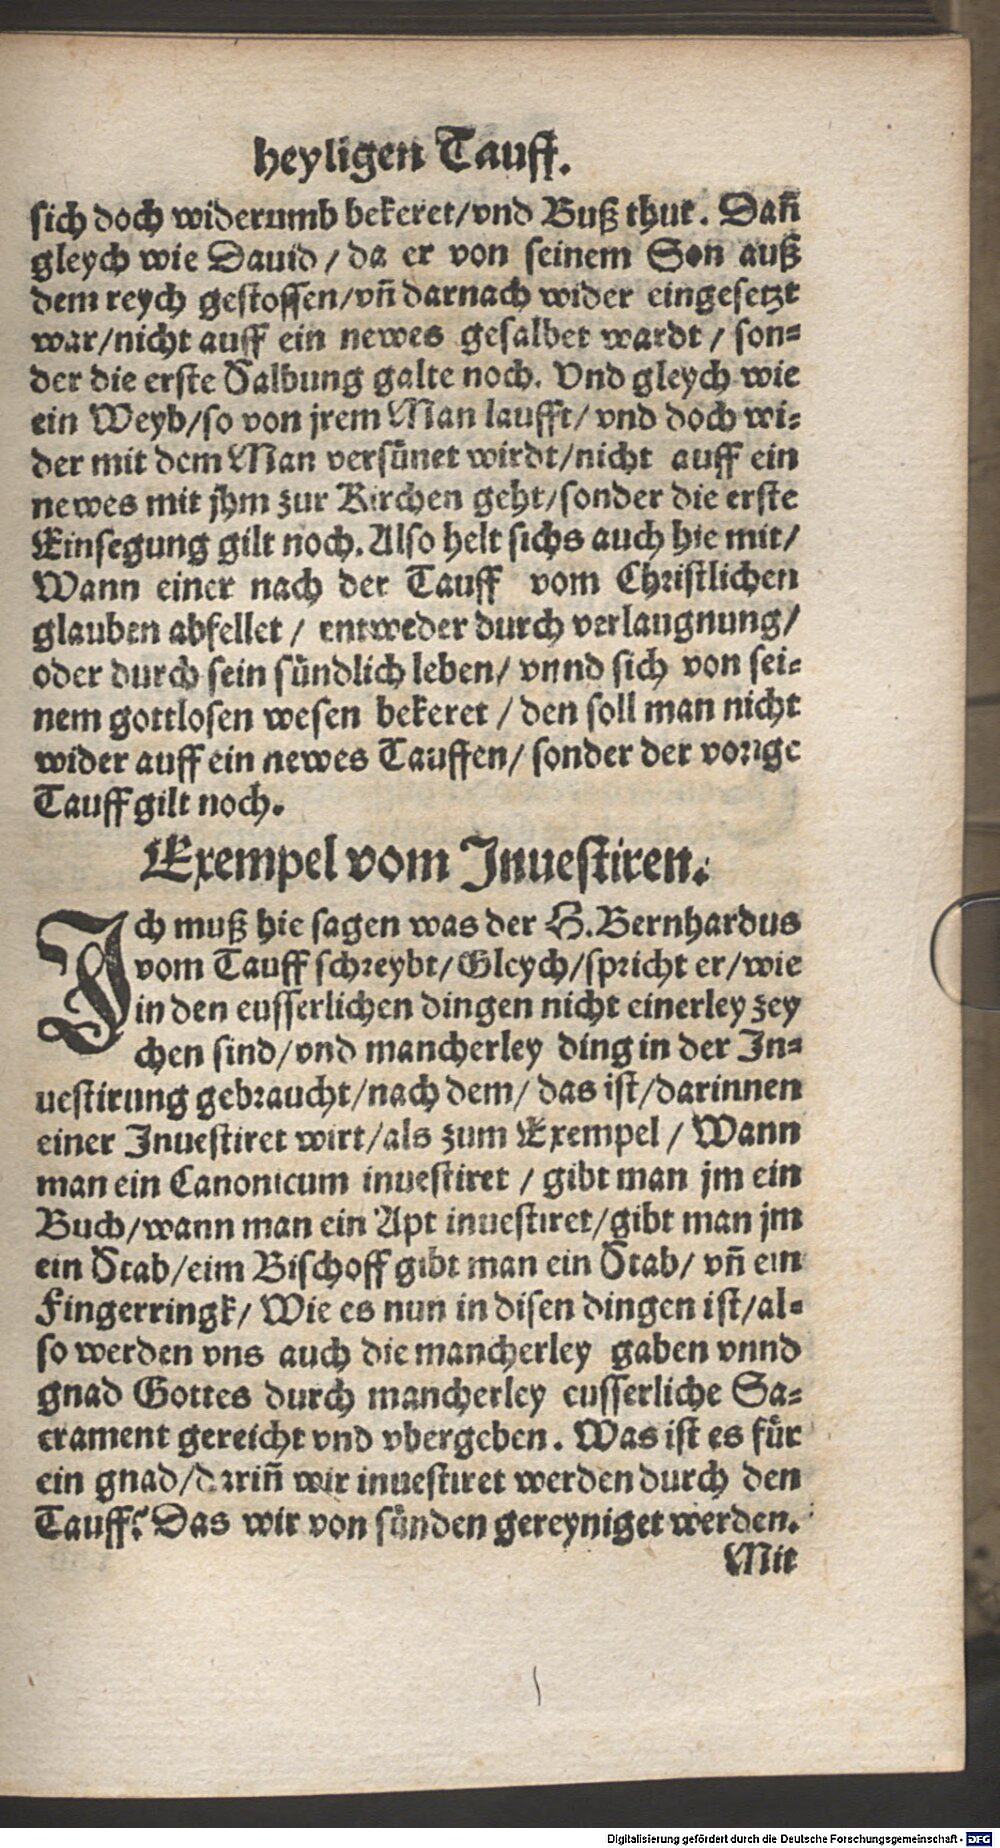 heyligen Tauff.
sich doch widerumb bekeret/vnd Buß thut. Dañ
gleych wie Dauid/ da er von seinem Son auß
dem reych gestossen/vñ darnach wider eingesetzt
war/nicht auff ein newes gesalbet wardt/ son=
der die erste Salbung galte noch. Vnd gleych wie
ein Weyb/so von jrem Man laufft/ vnd doch wi=
der mit dem Man versünet wirdt/nicht auff ein
newes mit jhm zur Kirchen geht/sonder die erste
Einsegung gilt noch. Also helt sichs auch hie mit/
Wann einer nach der Tauff vom Christlichen
glauben abfellet/ entweder durch verlaugnung/
oder durch sein sündlich leben/ vnnd sich von sei=
nem gottlosen wesen bekeret/ den soll man nicht
wider auff ein newes Tauffen/ sonder der vorige
Tauff gilt noch.
Exempel vom Inuestiren.
Ich muß hie sagen was der H. Bernhardus
vom Tauff schreybt/Gleych/spricht er/wie
in den eusserlichen dingen nicht einerley zey
chen sind/vnd mancherley ding in der In=
uestirung gebraucht/nach dem/ das ist/darinnen
einer Inuestiret wirt/als zum Exempel/ Wann
man ein Canonicum inuestiret/ gibt man jm ein
Buch/wann man ein Apt inuestiret/gibt man jm
ein Stab/eim Bischoff gibt man ein Stab/ vñ ein
Fingerringk/ Wie es nun in disen dingen ist/al=
so werden vns auch die mancherley gaben vnnd
gnad Gottes durch mancherley eusserliche Sa=
crament gereicht vnd vbergeben. Was ist es für
ein gnad/dariñ wir inuestiret werden durch den
Tauff? Das wir von sünden gereyniget werden.
Mit
Digitalisierung gefördert durch die Deutsche Forschungsgemeinschaft - DFG